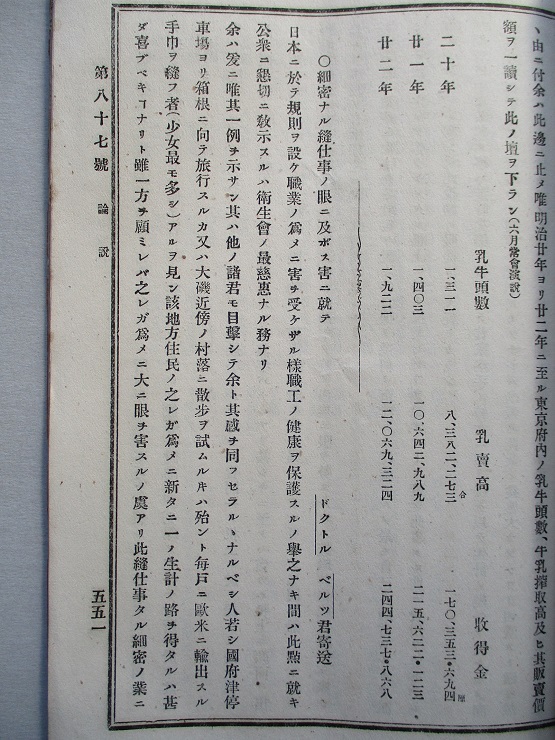 ヽ由ニ付余ハ此邊ニ止メ唯明治廿年ヨリ廿二年ニ至ル東京府內ノ乳牛頭數、牛乳搾取高及ヒ其販賣價
額ヲ一讀シテ此ノ壇ヲ下ラン(六月常會演說)
乳牛頭數 乳賣高 收得金
二十年 一、三一一 八、三八二、二七三合 一七〇、三五三・六九四厘
廿一年 一、四〇三 一〇、六四二、九八九 二一五、六二二・一二三
廿二年 一、九二二 一二、〇六九、三二四 二四四、七三七・八六八
〇細密ナル縫仕事ノ眼ニ及ボス害ニ就テ
ドクトル ベルツ君寄送
日本ニ於テ規則ヲ設ケ職業ノ爲メニ害ヲ受ケザル樣職工ノ健康ヲ保護スルノ擧之ナキ間ハ此點ニ就キ
公衆ニ懇切ニ敎示スルハ衛生會ノ最慈惠ナル務ナリ
余ハ爰ニ唯其一例ヲ示サン其ハ他ノ諸君モ目擊シテ余ト其感ヲ同フセラルヽナルベシ人若シ國府津停
車塲ヨリ箱根ニ向テ旅行スルカ又ハ大磯近傍ノ村落ニ散步ヲ試ムルキハ殆ント每戶ニ歐米ニ輸出スル
手巾ヲ縫フ者(少女最モ多シ)アルヲ見ン該地方住民ノ之レガ爲メニ新タニ一ノ生計ノ路ヲ得タルハ甚
ダ喜ブベキヿナリト雖一方ヲ顧ミレバ之レガ爲メニ大ニ眼ヲ害スルノ虞アリ此縫仕事タル細密ノ業ニ
第八十七號 論說 五五一